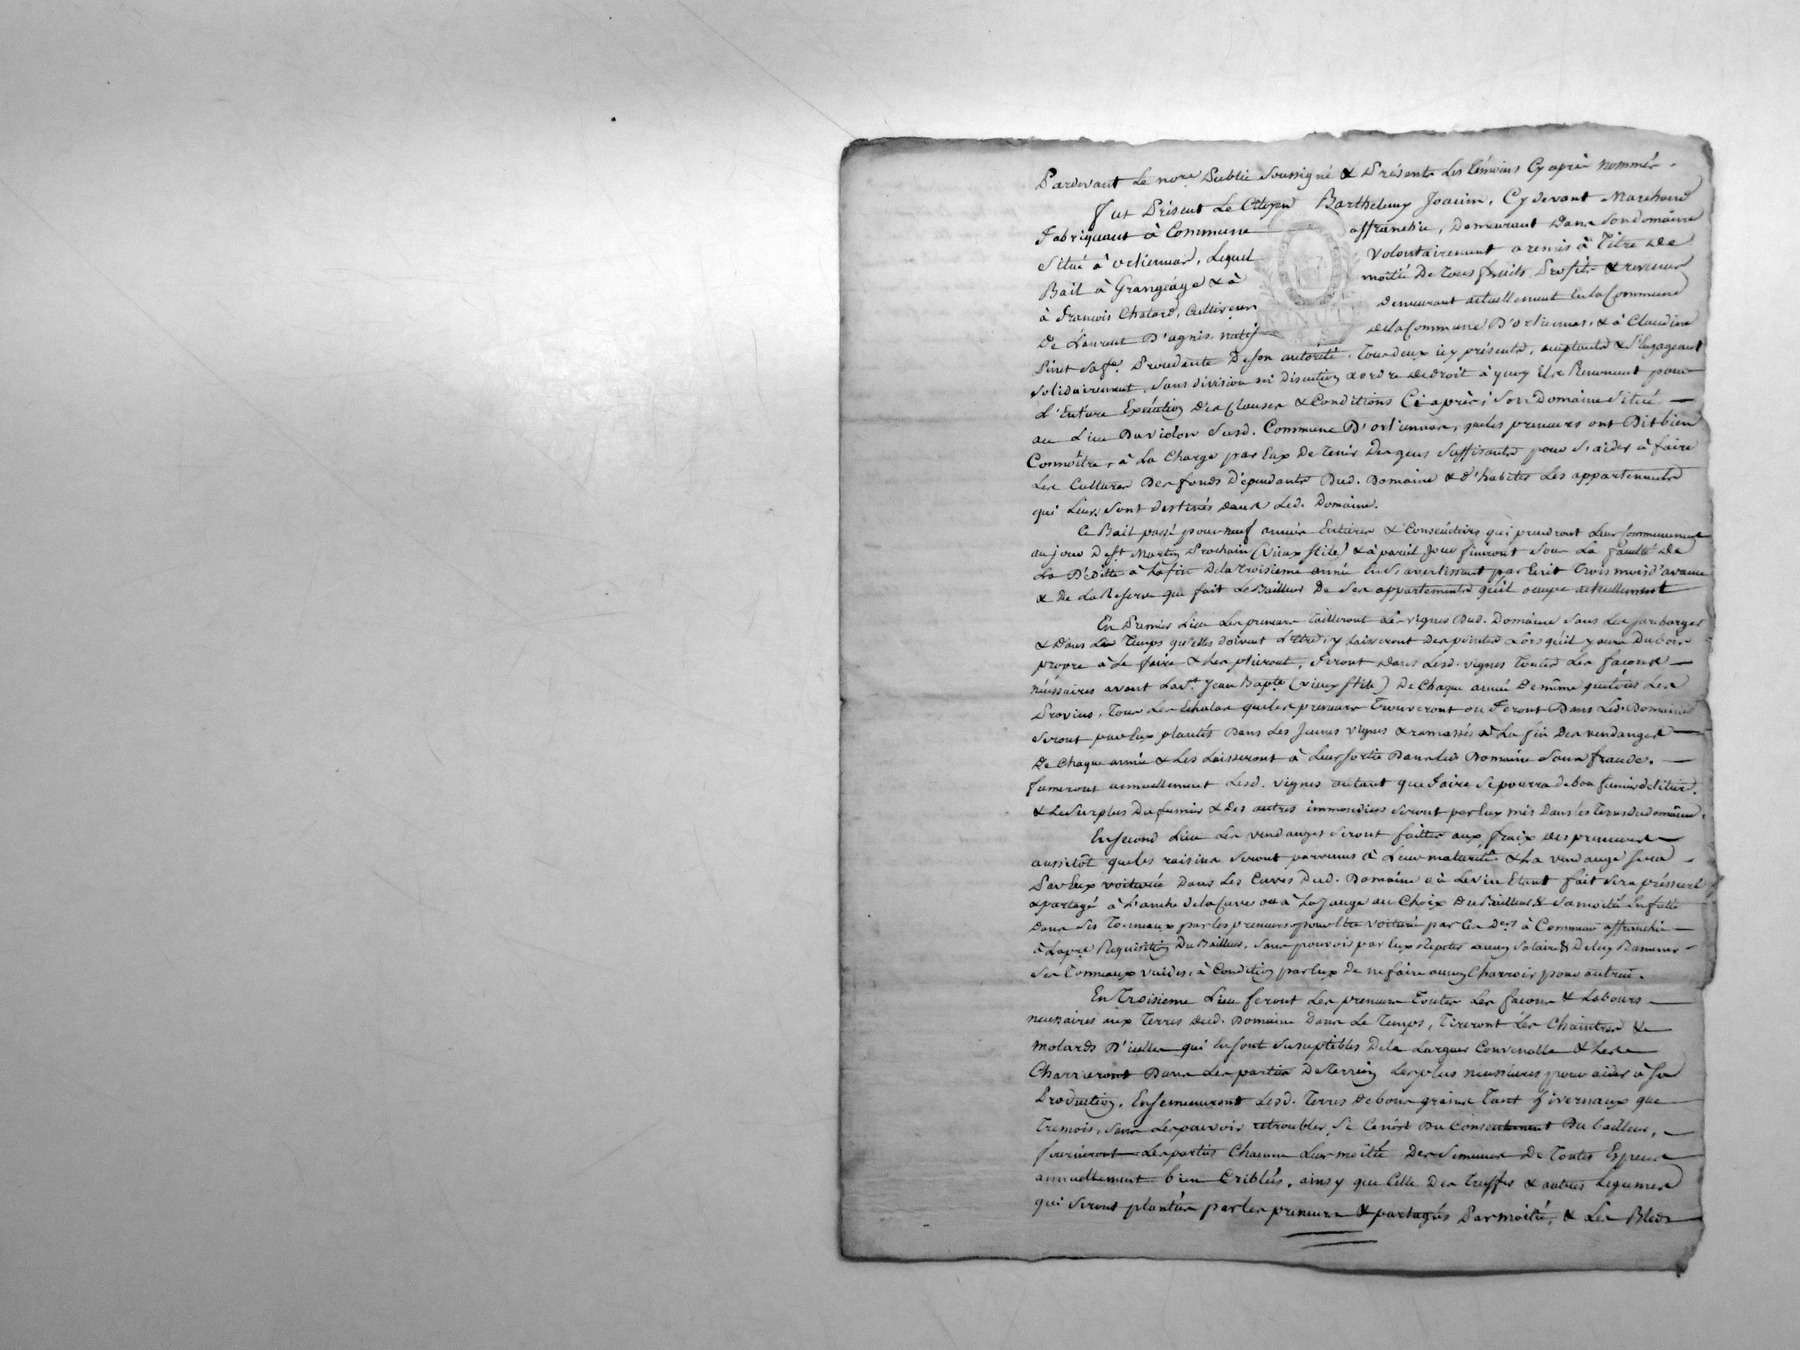 Pardevant le nore. Public soussigné & Présents les témoins Cy après nommés.
fut Présent Le Citoyen Barthelemy Joacim, Cy devant Marchand
Fabriquant à Commune affranchie, Demeurant dans son domaine
situé à orliennas, Lequel volontairement a remis à Titre de
Bail à Grangeage & à moitié De tous fruits Profits & revenus
à francois Chatard, Cultivateur Demeurant actuellement en la Commune
De St Laurent D'agnis natif de la Commune D'orlienas, & à Claudine
sa fe. Procedante De son autorité, Tous deux icy présents, acceptants & s'engageant
solidairement, sans division ni discution & ordre de droit à quoy Els Renoncent pour
l'Entiere Exécution des Clauses & Conditions Ci après, son Domaine situé
au Lieu Du violon Susd. Commune D'orliennas, que les preneurs ont Dit bien
Connoître, à La Charge par Eux De Tenir Des gens suffisants pour s'aider à faire
Les Cultures Des fonds dépendants Dud. Domaine & d'habiter Les appartements
qui leurs sont destinés dans Led. Domaine.
Ce Bail passé pour neuf années Entieres & Consécutives qui prendront Leur Commencement
au jour De St Martin Prochain (vieux stile) & à pareil Jour finiront sous La faculté De
La Dédite à la fin De la troisieme année En s'avertissant par Ecrit trois mois d'avance
& De La Reserve que fait Le Bailleur De ses appartements qu'il occupe actuellement
En Premier Lieu Les preneurs Tailleront Les vignes Dud. Domaine sans les surcharger
& dans Les Temps qu'elles doivent L'etre, y laisseront des pointes Lors qu'il y aura Du bois
propre à Le faire & Les plieront, feront dans Lesd. vignes Toutes Les façons
nécessaires avant La St. Jean Bapte (vieux stile) De Chaque année De même que tous Les
Provins, Tous Les Echalas que les preneurs Trouveront ou feront Dans Led. Domaine
seront par Eux plantés Dans Les Jeunes vignes & ramassés à La fin Des vendanges
De Chaque année & Les Laisseront à Leur sortie Dans led. Domaine Sans fraude.
fumeront annuellement Lesd. vignes autant que Faire se pourra de bon fumier de litiere.
& Le Surplus Du fumier & Des autres immondices seront par Eux mis Dans les Terres du domaine.
En second Lieu Les vendanges seront faittes aux fraix des preneurs
aussitôt que les raisins seront parvenus à Leur maturité & La vendange sera
Par Eux voiturée Dans Les Cuves Dud. Domaine où Le vin Etant fait sera préssuré
& partagé à L'anche De la Cuve ou à La Jauge au Choix Du Bailleur & sa moitié Enfutté
Dans ses Tonneaux par les preneurs pour Etre voituré par Les Ders à Commune affranchie
à La pre Requisition Du Bailleur, sans pouvoir par Eux Repeter aucun Salaire & De luy Ramener
Ses Tonneaux vuides, à Condition par Eux de ne faire aucun Charroir pour autrui.
En Troisieme Lieu feront Les preneurs Toutes Les façons & Labours
necessaires aux Terres dud. Domaine Dans Le Temps, Tireront Les Chaintres &
molards D'icelles qui en sont susceptibles De la Largeur Convenable & Les
Charrieront Dans Les parties De Terrein Les plus necessaires pour aider à Sa
Production, Ensemenceront Lesd. Terres de bons grains Tant hivernaux que
Tremois, sans Les pouvoir retroubler, Si Ce n'est Du Consentement Du bailleur,
fourniront Les parties Chacune Leur moitié Des Semences De Toutes Especes
annuellement bien Criblées, ainsy que Celle Des Truffes & autres Legumes
qui seront plantées par les preneurs & partagés Par moitié, & Les Bleds